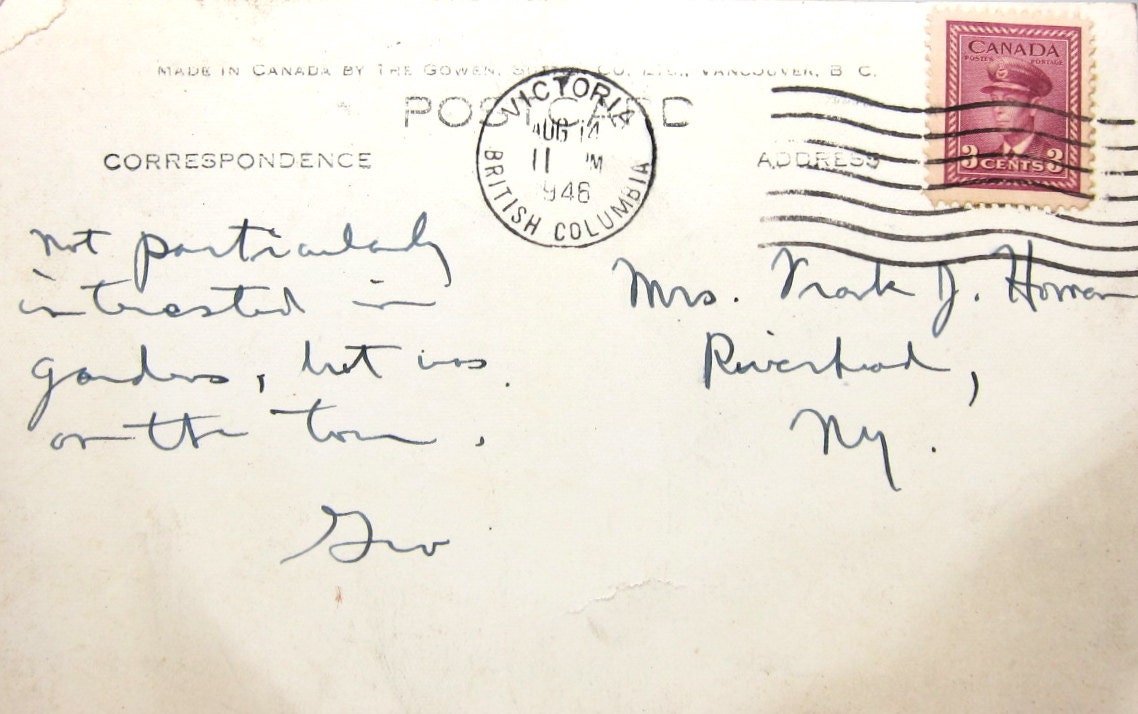 CANADA
POSTES POSTAGE
3 CENTS 3
MADE IN CANADA BY THE GOWEN, SUTTON CO. LTD., VANCOUVER, B. C.
POST CARD
CORRESPONDENCE
ADDRESS
VICTORIA
AUG 14
11 PM
1946
BRITISH COLUMBIA
not particularly
interested in
gardens, but was
on the tour.
Geo
Mrs. Frank J. Homan
Riverhead,
NY.